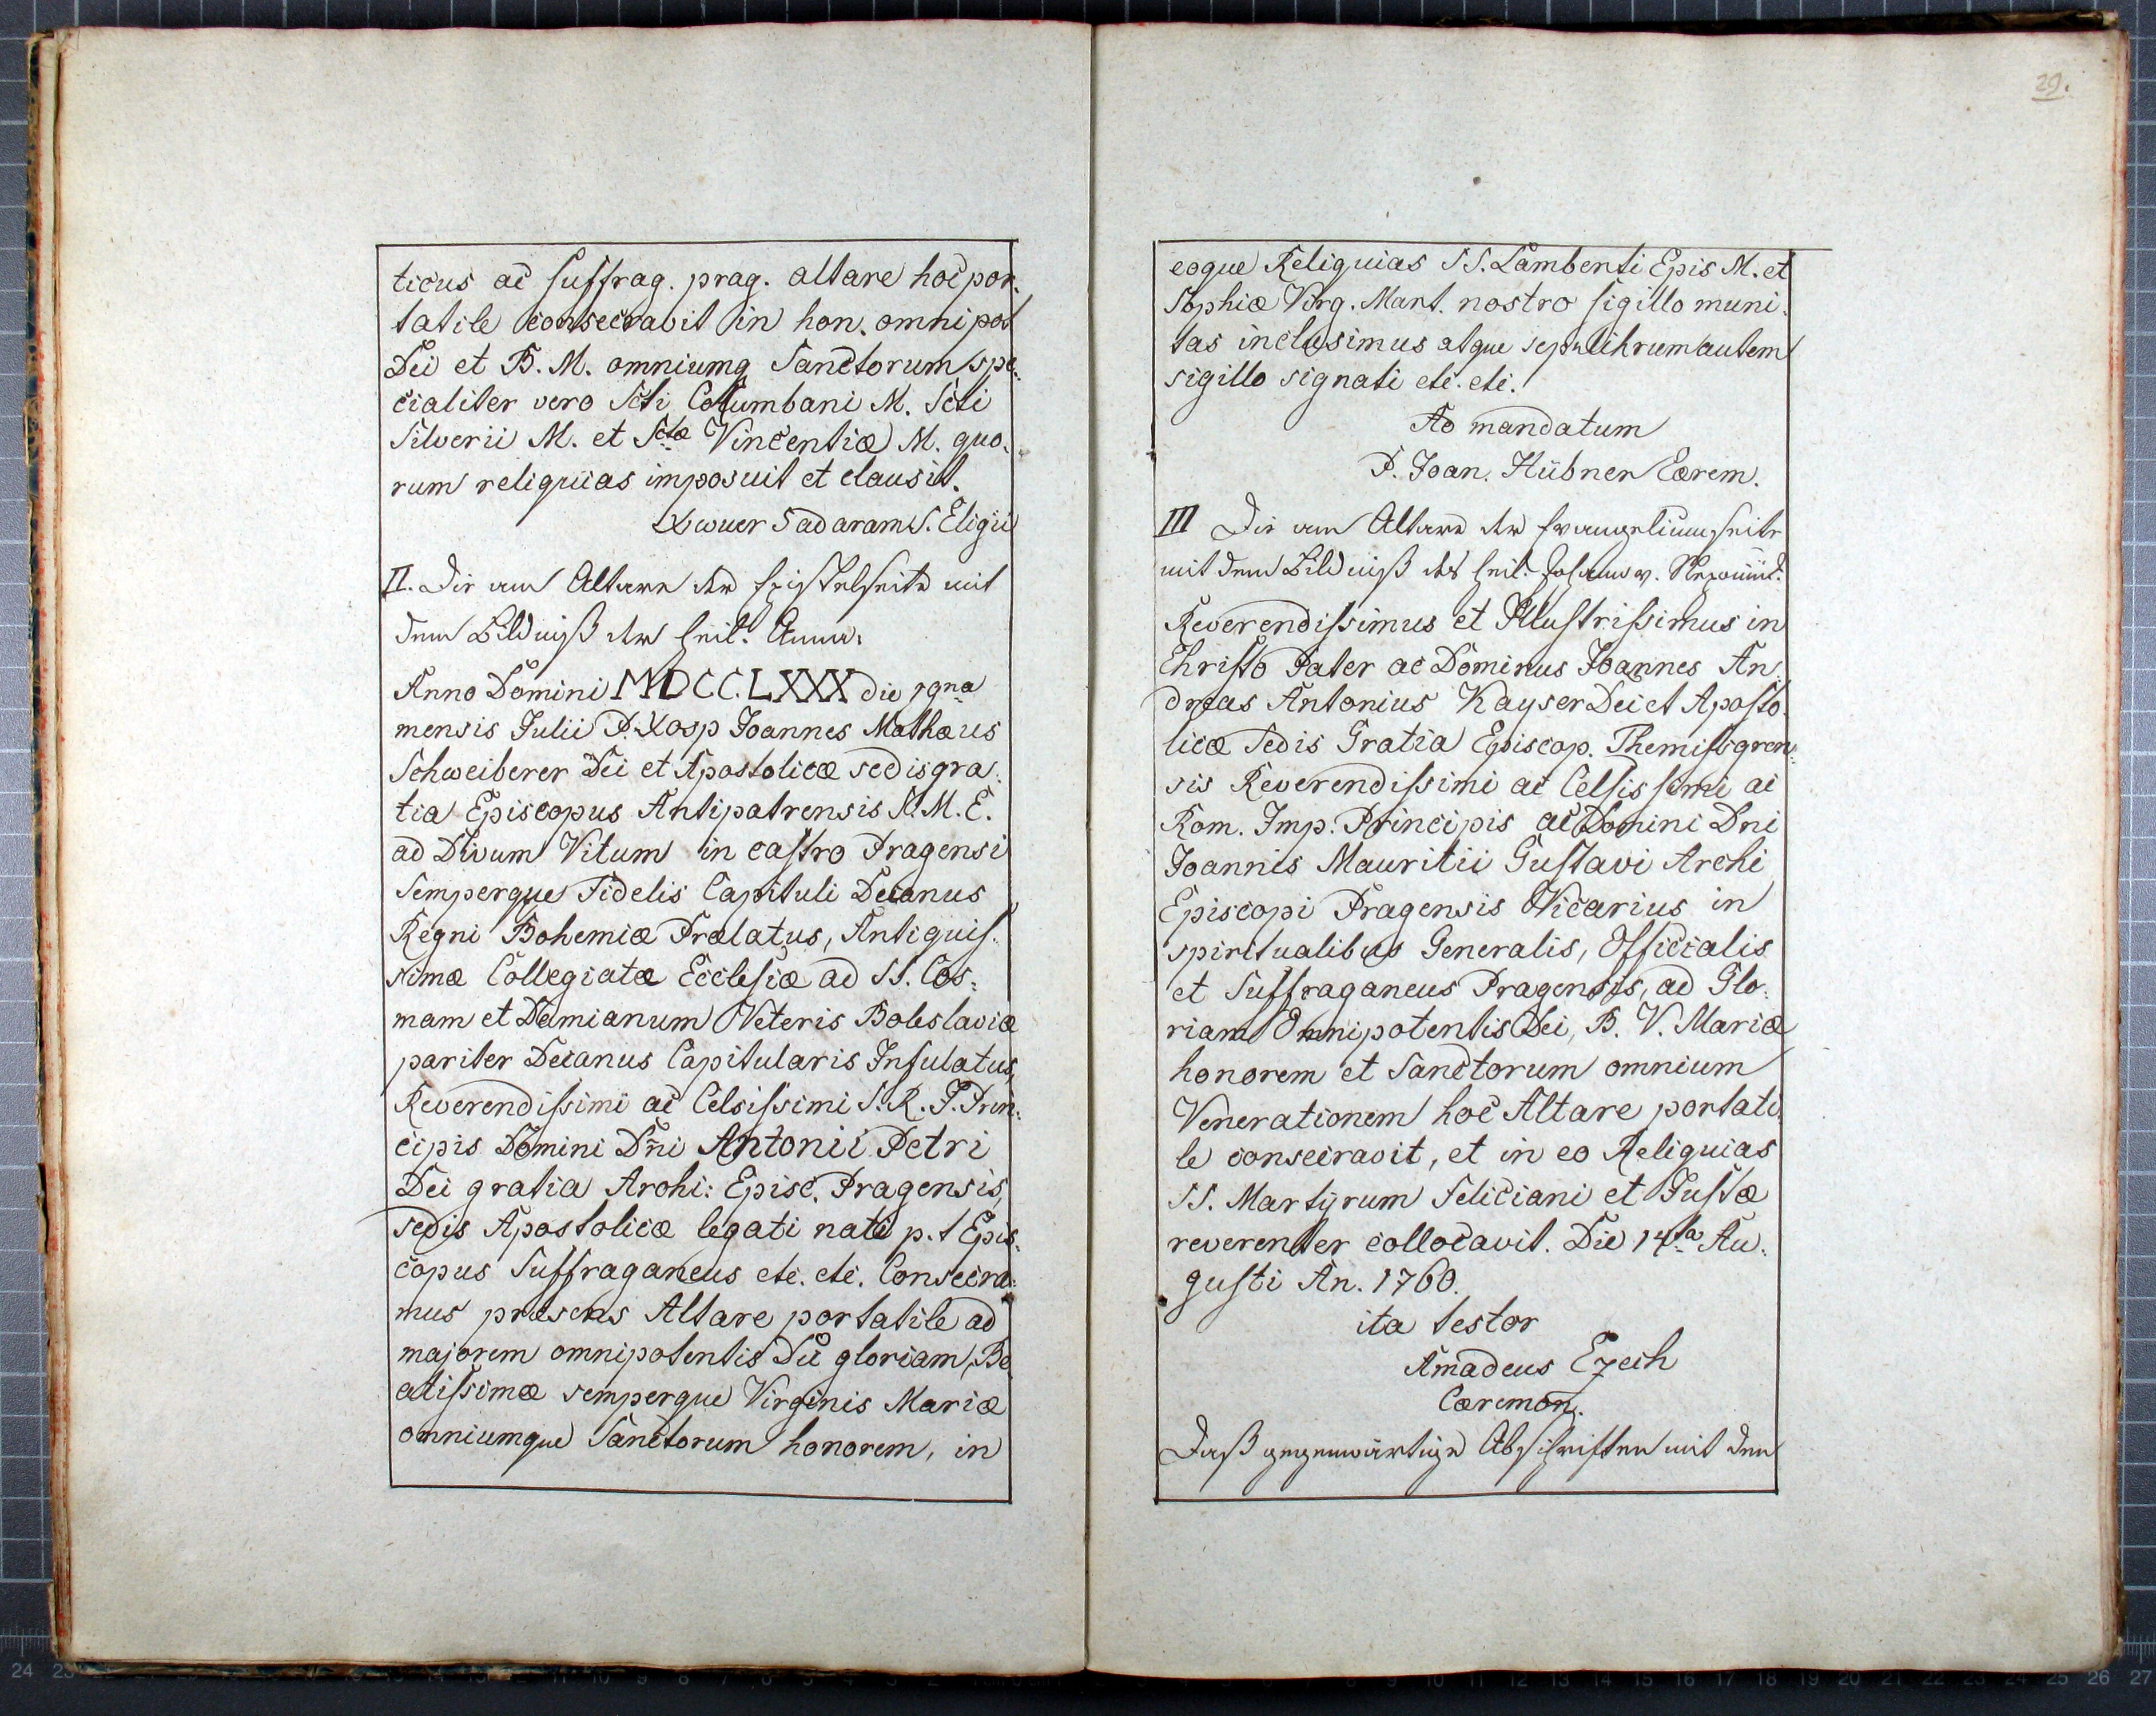 ticus ac suffrag. prag. altare hoc por.
tatile consecravit in hon. omnipot
Dei et B. M. omniumq Sanctorum spe:
cialiter vero Scti Columbani M. Scti
Silverii M. et Sctæ Vincentiæ M. quo.
rum reliquias imposuit et clausit.
5 ad aram S. Eligii
II. Die am Altare der Epistelseite mit
dem Bildniß der heil. Anna.
Anno Domini MDCC.LXXX die
mensis Julii Joannes Mathæus
Schweiberer Dei et Apostolicæ sedis gra.
tia Episcopus Antipatrensis S. M. E.
ad Divum Vitum in castro Pragensi
Semperque Fidelis Capituli Decanus
Regni Bohemiæ Prælatus, Antiquis.
simæ Collegiatæ Ecclesiæ ad SS. Cos:
mam et Damianum Veteris Boleslaviæ
pariter Decanus Capitularis Infulatus,
Reverendissimi ac Celsissimi S. R. I. Prin:
cipis Domini Dñi Antonii Petri
Dei gratia Archi: Episc. Pragensis,
sedis Apostolicæ legati nati p. t Epis:
copus Suffraganeus etc. etc. Consecra:
mus præsens Altare portatile ad
majorem omnipotentis Dei gloriam, Be
atissimæ semperque Virginis Mariæ
omniumque Sanctorum honorem, in
29.
eoque Reliquias SS. Lamberti Epis M. et
Sophiæ Virg. Mart. nostro sigillo muni.
tas inclusimus atque sepulchrum autem
sigillo signati etc. etc.
Ad mandatum
P. Joan. Hübner Cærem.
III Die am Altare der Evangeliumseite
mit dem Bildniß des heil. Johann v. Nepomuk.
Reverendissimus et Illustrissimus in
Christo Pater ac Dominus Joannes An:
dreas Antonius Kayser Dei et Aposto.
licæ Sedis Gratia Episcop. Themiscyren:
sis Reverendissimi ac Celsissimi ac
Rom. Imp. Principis ac Domini Dni
Joannis Mauritii Gustavi Archi
Episcopi Pragensis Vicarius in
spiritualibus Generalis, Officialis
et Suffraganeus Pragensis, ad Glo:
riam Omnipotentis Dei, B. V. Mariæ
honorem et Sanctorum omnium
Venerationem hoc Altare portati.
le consecravit, et in eo Reliquias
SS. Martyrum Feliciani et Justæ
reverenter collocavit. Die 14ta Au.
gusti An. 1760.
ita testor
Amadeus Czech
Cæremon.
Daß gegenwärtige Abschriften mit den